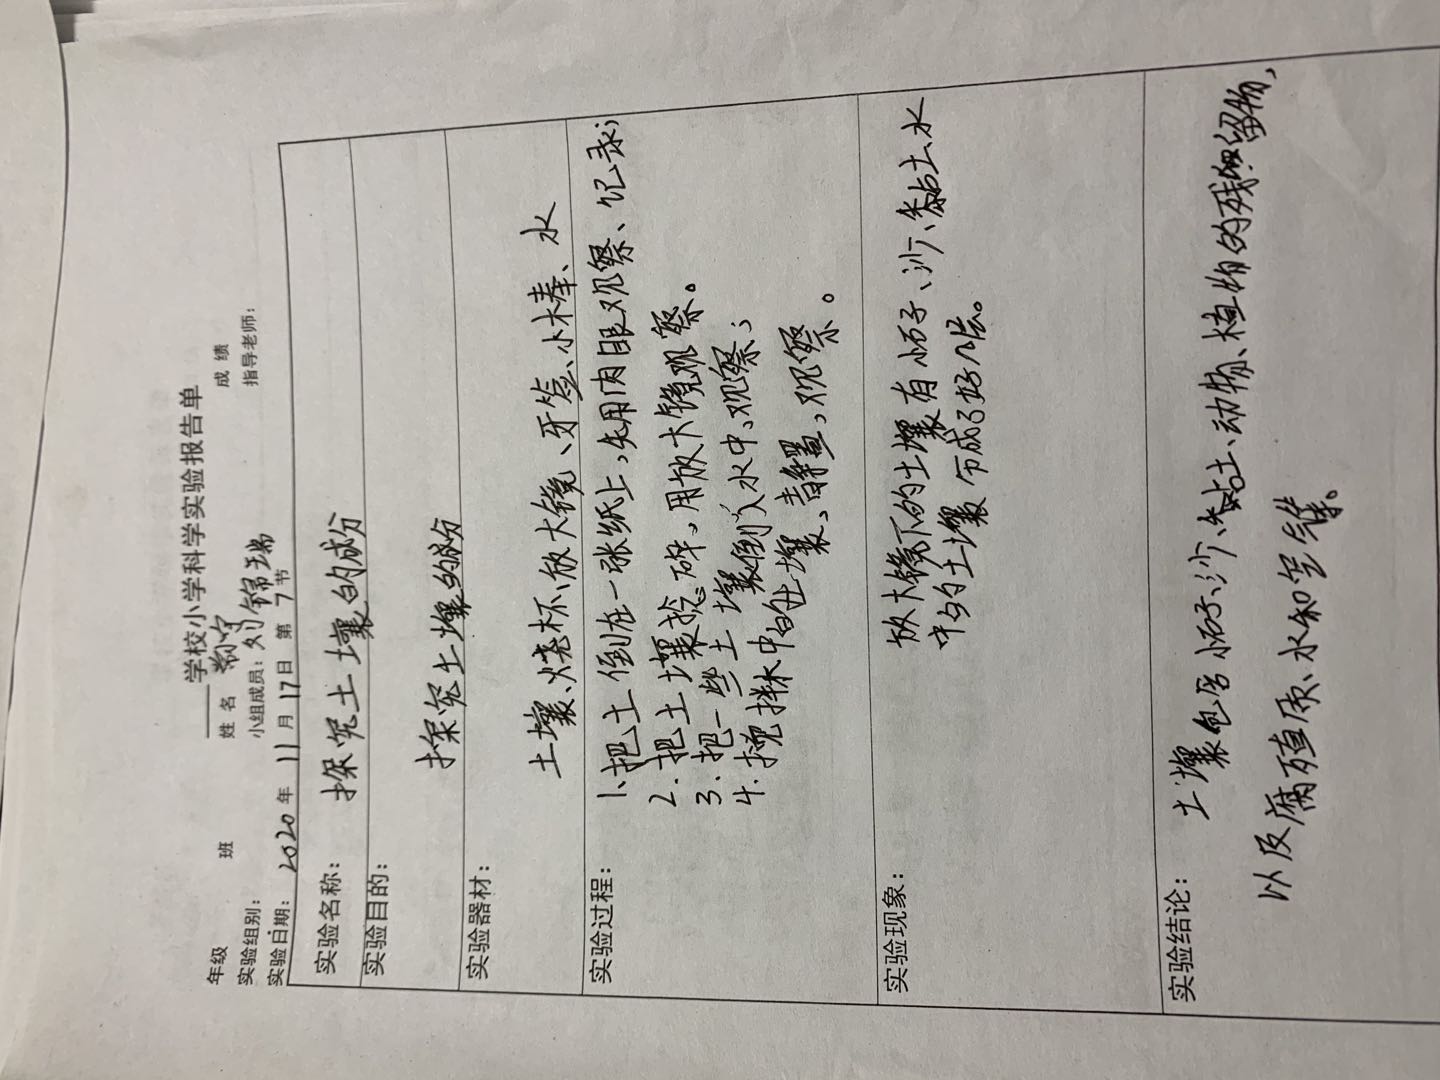 学校小学科学实验报告单
年级 班 姓名 成绩
实验组别: 小组成员: 刘锦瑞 指导老师:
实验日期: 2020年 11月 17日 第 7节
实验名称: 探究土壤的成份
实验目的:
探究土壤的成份
实验器材:
土壤、烧杯、放大镜、牙签、小木棒、水
实验过程:
1.把土倒在一张纸上,先用肉眼观察、记录;
2.把土壤捻碎,用放大镜观察。
3.把一些土壤倒入水中,观察;
4.搅拌水中的土壤,静置,观察。
实验现象:
放大镜下的土壤有小石子、沙、黏土、水
中的土壤分成了好几层。
实验结论:
土壤包含小石子、沙、黏土、动物、植物的残留物,
以及腐殖质、水和空气。